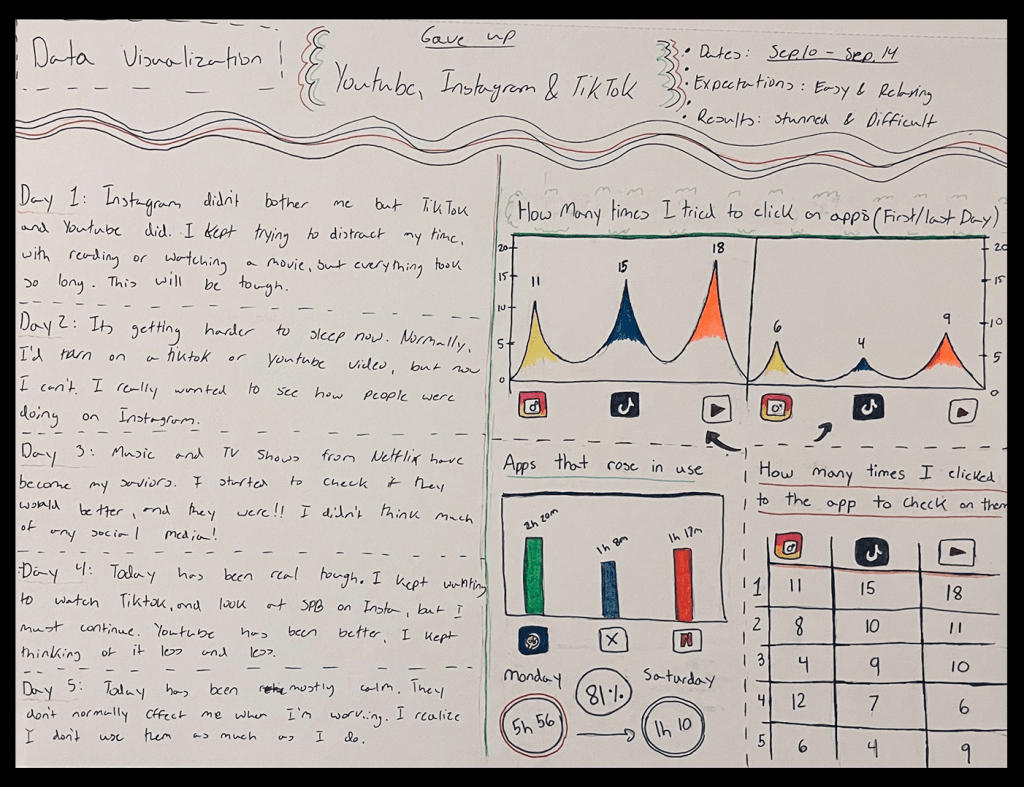 Data Visualization!
Gave up
Youtube, Instagram & TikTok
• Dates: Sep10 - Sep.14
• Expectations: Easy & Relaxing
• Results: Stunned & Difficult
Day 1: Instagram didn't bother me but TikTok
and Youtube did. I kept trying to distract my time,
with reading or watching a movie, but everything took
so long. This will be tough.
Day 2: Its getting harder to sleep now. Normally,
I'd turn on a tiktok or youtube video, but now
I can't. I really wanted to see how people were
doing on Instagram.
Day 3: Music and TV Shows from Netflix have
become my saviors. I started to check if they
would better, and they were!! I didn't think much
of any social media!
Day 4: Today has been real tough. I kept wanting
to watch Tiktok, and look at SPB on Insta, but I
must continue. Youtube has been better, I kept
thinking of it less and less.
Day 5: Today has been mostly calm. They
don't normally effect me when I'm working. I realize
I don't use them as much as I do.
How Many times I tried to click on apps (First/last Day)
20
15
10
5
0
11
15
18
6
4
9
20
15
10
5
0
Apps that rose in use
2h 20m
1h 8m
1h 17m
X
N
Monday
81%
Saturday
5h 56
1h 10
How many times I clicked
to the app to check on them
1 11 15 18
2 8 10 11
3 4 9 10
4 12 7 6
5 6 4 9